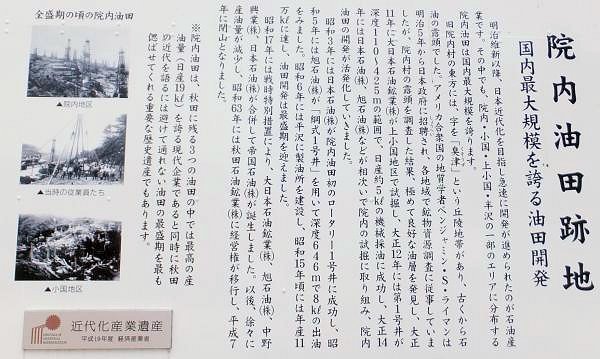 院内油田跡地
国内最大規模を誇る油田開発
明治維新以降、日本近代化を目指し急速に開発が進められたのが石油産
業です。その中でも、院内・小国・上小国・平沢の一部のエリアに分布する
院内油田は国内最大規模を誇ります。
旧院内村の東方には、字を「臭津」という丘陵地帯があり、古くから石
油の露頭でした。アメリカ合衆国の地質学者ベンジャミン・S・ライマンは
明治5年から日本政府に招聘され、各地域で鉱物資源調査に従事していま
したが、院内村の露頭を調査した結果、極めて良好な油層を発見し、大正
11年に大日本石油鉱業(株)が上小国地区で試掘し、大正12年には第1号井が
深度110〜425mの範囲で、日産約5㎘の機械採油に成功し、大正14
年には日本石油(株)、旭石油(株)などが相次いで院内の試掘に取り組み、院内
油田の開発が活発化していきました。
昭和3年には日本石油(株)が院内油田初のロータリー1号井に成功し、昭
和5年には旭石油(株)が「綱式1号井」を用いて深度646mで8㎘の出油
に成功しました。昭和6年には平沢に製油所を建設し、昭和15年頃には年産11
万㎘に達し、油田開発は最盛期を迎えました。
昭和17年には戦時特別措置により、大日本石油鉱業(株)、旭石油(株)、中野
興業(株)、日本石油(株)が合併して帝国石油(株)が誕生しました。以後、徐々に
産油量が減少し、昭和63年には秋田石油鉱業(株)に経営権が移行し、平成7
年に閉山となりました。
※院内油田は、秋田に残る3つの油田の中では最高の産
油量(日産19㎘)を誇る現代企業であると同時に秋田
の近代を語るには避けて通れない油田の最盛期を最も
偲ばせてくれる重要な歴史遺産でもあります。
全盛期の頃の院内油田
▲院内地区
▲当時の従業員たち
▲小国地区
近代化産業遺産
平成19年度 経済産業省